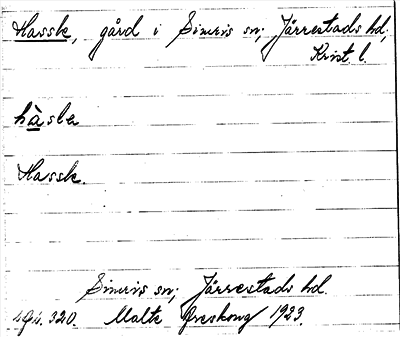 Hassle, gård i Simris sn; Järrestads hd;
Krist. l.
hàslea
Hassle.
Simris sn; Järrestads hd.
Malte Areskoug 1923.